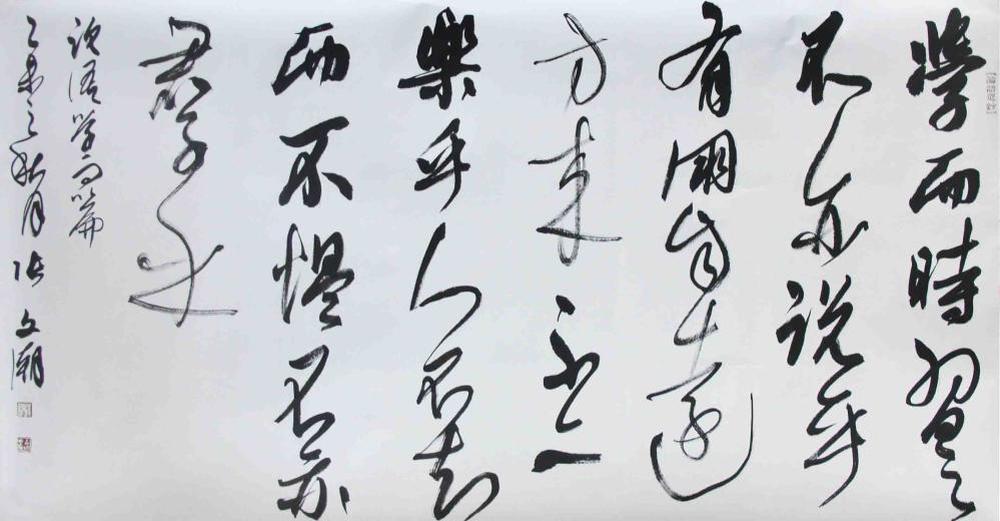 學而時習之
不亦說乎
有朋自遠
方來不亦
樂乎人不知
而不慍不亦
君子乎
論語学而篇
乙未之秋月張文潮